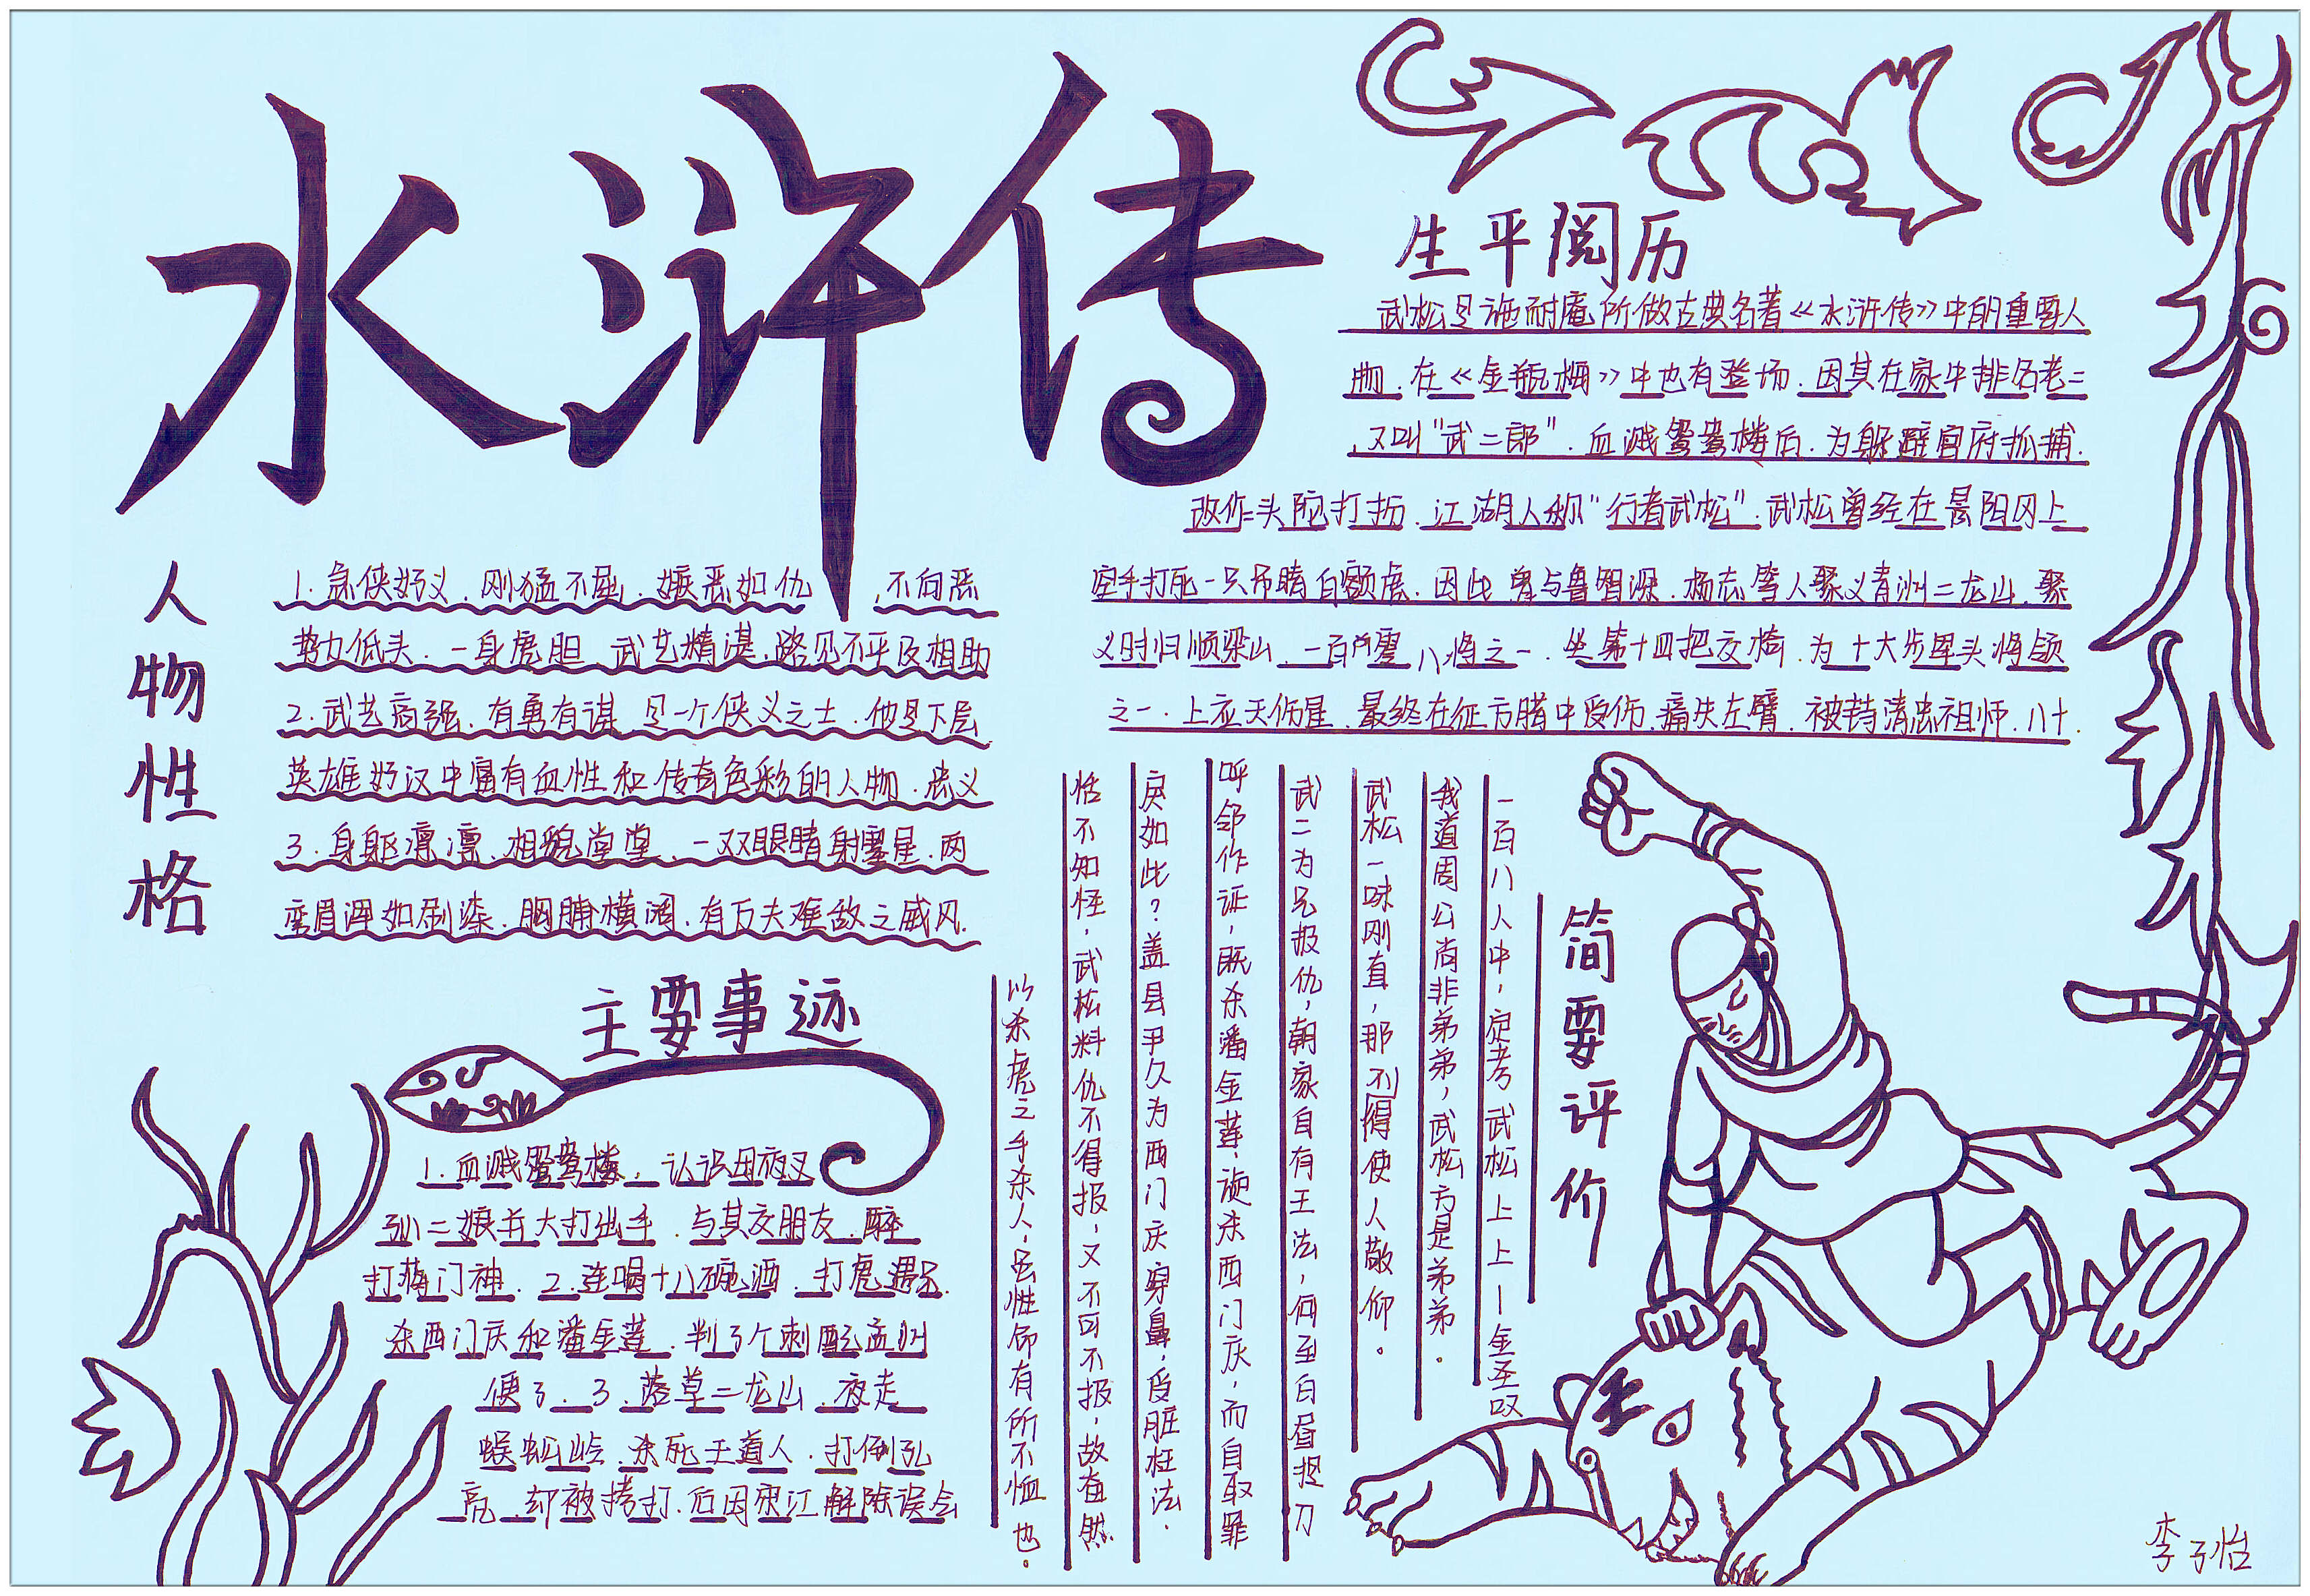 水浒传
生平阅历
武松是施耐庵所做古典名著《水浒传》中的重要人
物.在《金瓶梅》中也有登场.因其在家中排名老二
.又叫"武二郎".血溅鸳鸯楼后.为躲避官府抓捕.
改作头陀打扮.江湖人称"行者武松".武松曾经在景阳冈上
空手打死一只吊睛白额虎.因此.曾与鲁智深.杨志等人聚义青州二龙山.聚
义时归顺梁山.一百零八将之一.坐第十四把交椅.为十大步军头将领
之一.上应天伤星.最终在征方腊中受伤.痛失左臂.被封清忠祖师.八十.
人物性格
1.急侠好义.刚猛不屈.嫉恶如仇.不向恶
势力低头.一身虎胆.武艺精湛.路见不平及相助
2.武艺高强.有勇有谋.是一个侠义之士.他是下层
英雄好汉中富有血性和传奇色彩的人物.忠义
3.身躯凛凛.相貌堂堂.一双眼睛射寒星.两
弯眉浑如刷漆.胸脯横阔.有万夫难敌之威风.
主要事迹
1.血溅鸳鸯楼,认识母夜叉
孙二娘并大打出手.与其交朋友.醉
打蒋门神.2.连喝十八碗酒.打虎遇兄.
杀西门庆和潘金莲.判了个刺配孟州
便了.3.落草二龙山.夜走
蜈蚣岭.杀死王道人.打倒孔
亮.却被拷打.后因宋江解除误会
简要评价
一百八人中,定考武松上上—金圣叹
我道周公尚非弟弟,武松方是弟弟.
武松一味刚直,那不得使人敬仰。
武二为兄报仇,朝家自有王法,何至白昼提刀
呼邻作证,既杀潘金莲,顷杀西门庆,而自取罪
戾如此?盖县尹久为西门庆穿鼻,受脏枉法.
恬不知怪,武松料仇不得报,又不可不报,故奋然
以杀虎之手杀人,虽性命有所不恤也.
李子怡